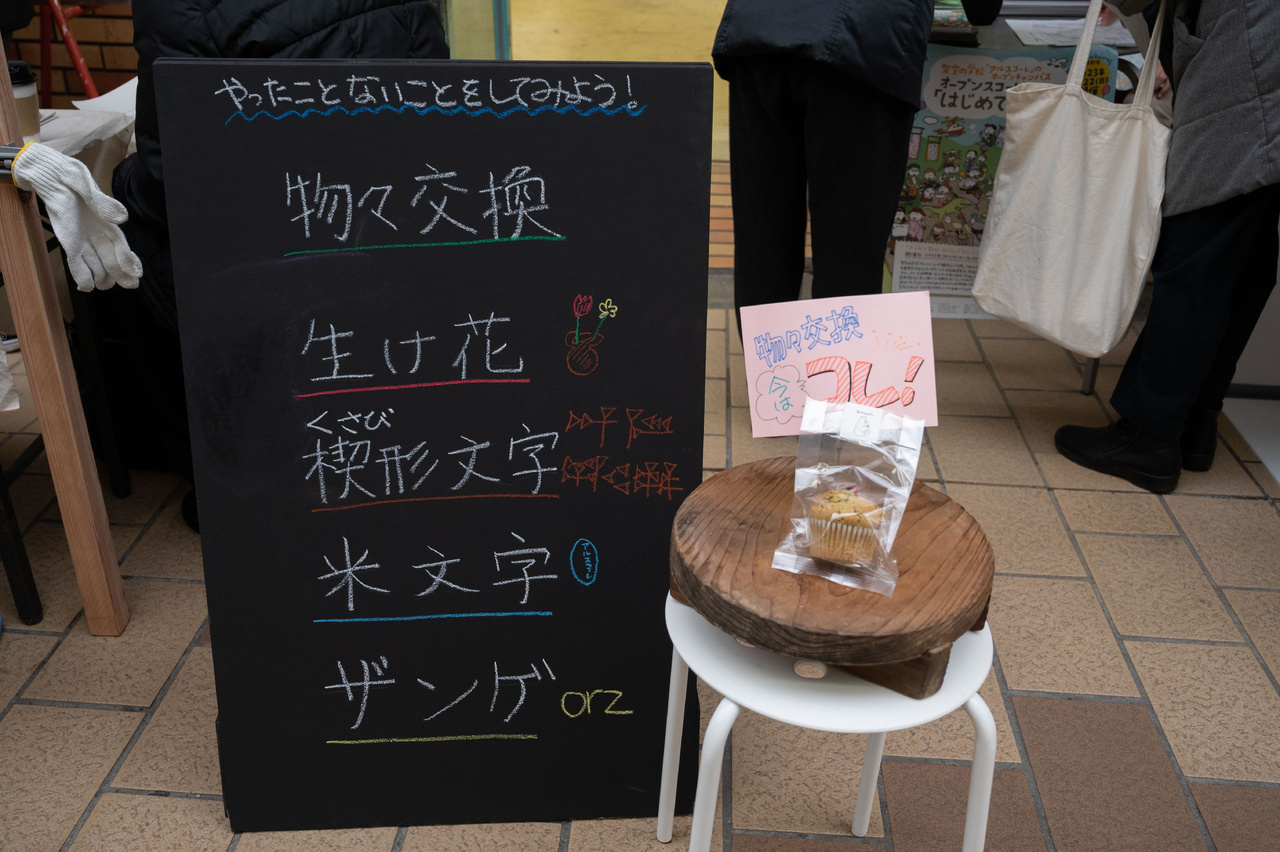 やったことないことをしてみよう!
物々交換
生け花
くさび
楔形文字
米文字
ザンゲ orz
物々交換
今は
コレ!
オープンスコ
「はじめて